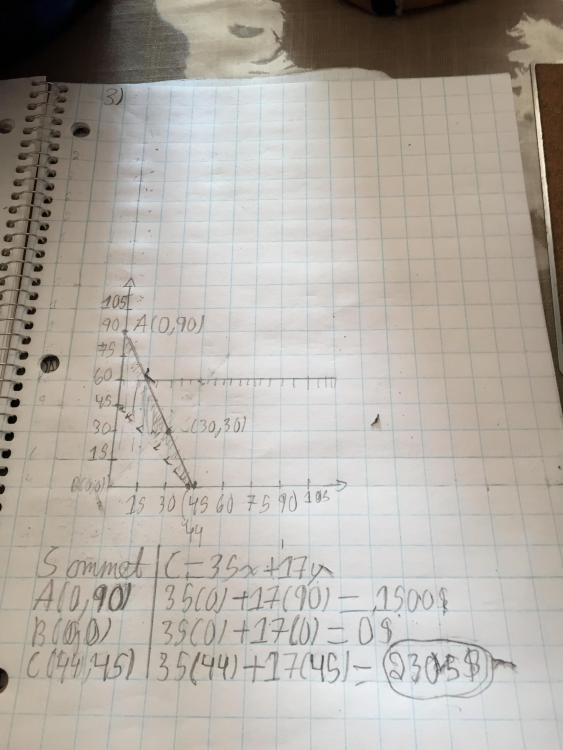 3)
105
90 A(0,90)
75
60
45
30 C(30,30)
15
B(0,0)
15 30 45 60 75 90 105
44
Sommet C=35x+17y
A(0,90) 35(0)+17(90)=1500$
B(0,0) 35(0)+17(0)=0$
C(44,45) 35(44)+17(45)=2305$